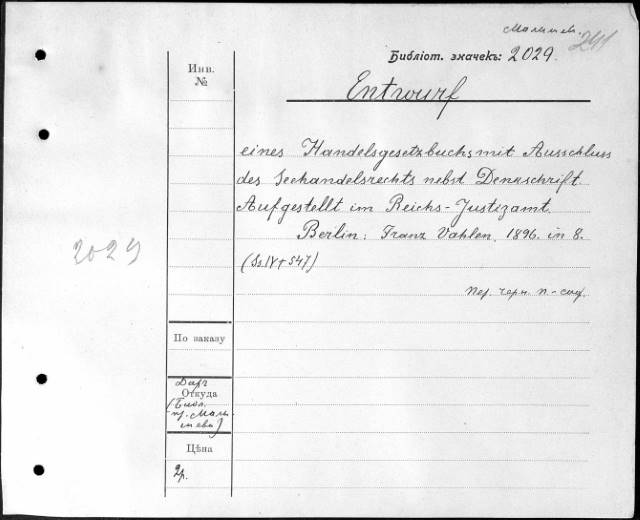 Малышев.
241
Библіот. значекъ: 2029.
Инв.
№
Entwurf
eines Handelsgesetzbuchs mit Ausschluss
des Seehandelsrechts nebst Denkschrift.
Aufgestellt im Reichs-Justizamt.
Berlin: Franz Vahlen, 1896. in 8.
2029
(Ss IV + 547)
Пер. черн. п.-
По заказу
Даръ
Откуда
(Библ.
пр. Малы-
шева)
Цѣна
2р.